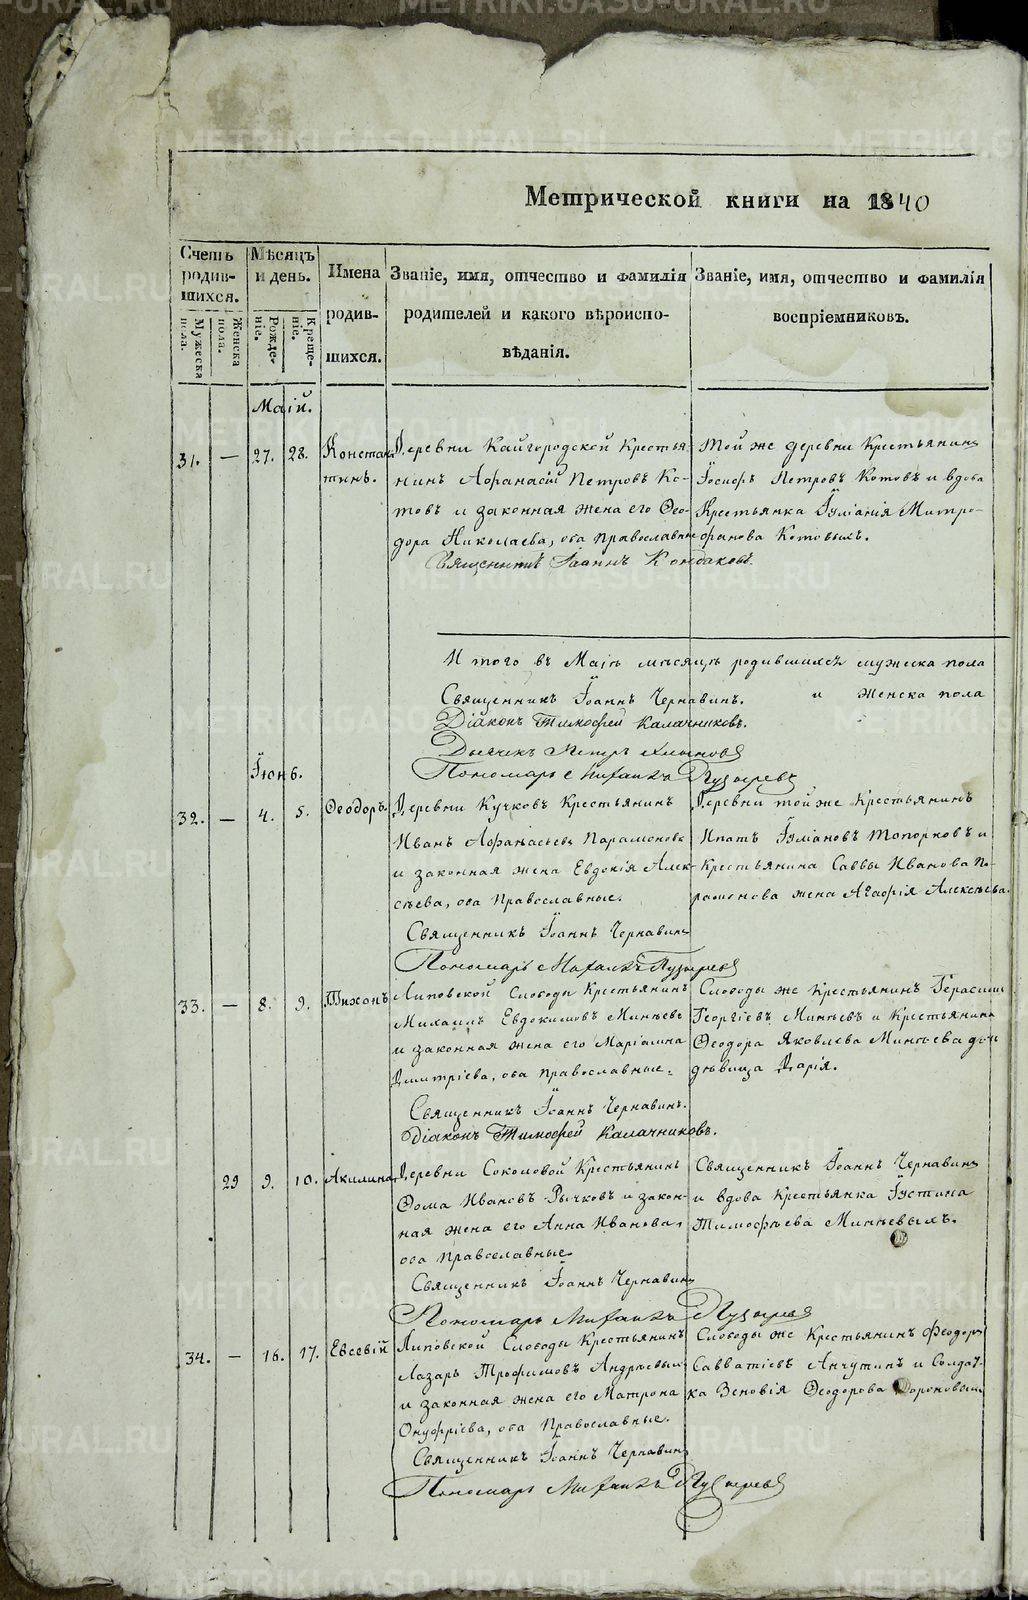 Метрической книги на 1840
Счетъ родив-шихся.
Мужеска пола.
Женска пола.
Мѣсяцъ и день.
Рожде-ніе.
Креще-ніе.
Имена родив-шихся.
Званіе, имя, отчество и фамилія
родителей и какого вѣроиспо-
вѣданія.
Званіе, имя, отчество и фамилія
воспріемниковъ.
Маій.
31. — 27. 28. Констан-
тинъ.
Деревни Кайгородской Крестья-
нинъ Афанасій Петровъ Ко-
товъ и законная жена его Ѳео-
дора Николаева, оба православные
Той же деревни Крестьянинъ
Іосифъ Петровъ Котовъ и вдова
Крестьянка Іуліанія Митро-
фанова Котовыхъ.
Священникъ Іоаннъ Кондаковъ.
И того въ Маіѣ мѣсяцѣ родившихсѧ мужеска пола
и женска пола
Священникъ Іоаннъ Чернавинъ.
Діаконъ Тимофей Калачниковъ.
Дьячекъ Петръ
Пономарь Михаилъ Пузыревъ
Іюнь.
32. — 4. 5. Ѳеодоръ.
Деревни Кучковъ Крестьянинъ
Иванъ Афанасьевъ Парамоновъ
и законная жена Евдокія Алек-
сѣева, оба Православные.
Деревни той же Крестьянинъ
Ипатъ Іуліановъ Топорковъ и
Крестьянина Саввы Иванова Па-
рамонова жена Агафія Алексѣева.
Священникъ Іоаннъ Чернавинъ
Пономарь Михаилъ Пузыревъ
33. — 8. 9. Тихонъ
Липовской Слободы Крестьянинъ
Михаилъ Евдокимовъ Минѣевъ
и законная жена его Маріамна
Димитріева, оба православные.
Слободы же Крестьянинъ Герасимъ
Георгіевъ Минѣевъ и Крестьянина
Ѳеодора Яковлева Минѣева дочь
дѣвица Дарія.
Священникъ Іоаннъ Чернавинъ.
Діаконъ Тимофей Калачниковъ.
29 9. 10. Акилина
Деревни Соколовой Крестьянинъ
Ѳома Ивановъ Рычковъ и закон-
ная жена его Анна Иванова,
оба Православные.
Священникъ Іоаннъ Чернавинъ
и вдова Крестьянка Іустина
Тимофѣева Минѣевыхъ.
Священникъ Іоаннъ Чернавинъ
Пономарь Михаилъ Пузыревъ
34. — 16. 17. Евсевій
Липовской Слободы Крестьянинъ
Лазарь Трофимовъ Андреевыхъ
и законная жена его Матрона
Онуфріева, оба Православные.
Слободы же Крестьянинъ Феодоръ
Савватіевъ Анчутинъ и Солдат-
ка Зеновія Ѳеодорова Дороновыхъ
Священникъ Іоаннъ Чернавинъ
Пономарь Михаилъ Пузыревъ
METRIKI.GASO-URAL.RU